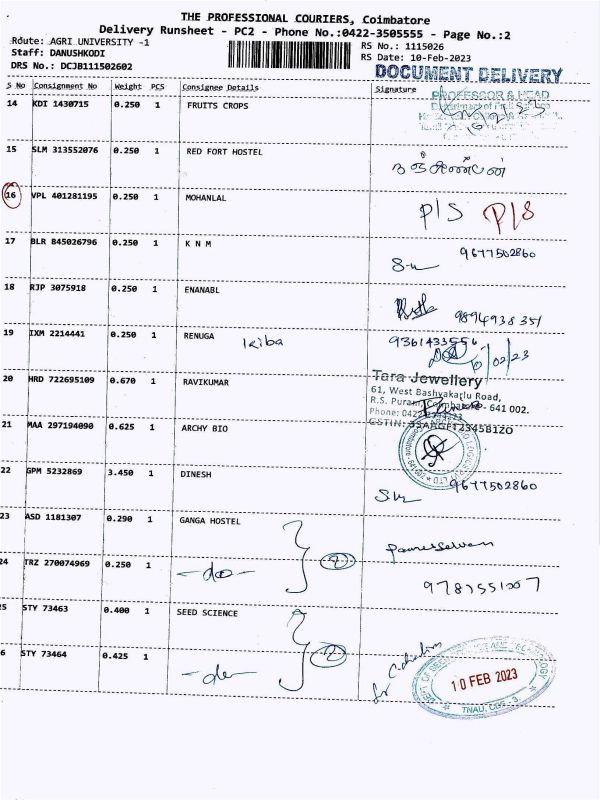 THE PROFESSIONAL COURIERS, Coimbatore
Delivery Runsheet - PC2 - Phone No.:0422-3505555 - Page No.:2
Route: AGRI UNIVERSITY -1
RS No.: 1115026
Staff: DANUSHKODI
RS Date: 10-Feb-2023
DRS No.: DCJB111502602
DOCUMENT DELIVERY
S No Consignment No Weight PCS Consignee Details Signature
PROFESSOR & HEAD
14 KDI 1430715 0.250 1 FRUITS CROPS
15 SLM 313552076 0.250 1 RED FORT HOSTEL
16 VPL 401281195 0.250 1 MOHANLAL P/S P/S
17 BLR 845026796 0.250 1 K N M 9677502860
18 RJP 3075918 0.250 1 ENANABL 9894938351
19 IXM 2214441 0.250 1 RENUGA 9361433556
/02/23
20 HRD 722695109 0.670 1 RAVIKUMAR
Tara Jewellery
61, West Bashyakarlu Road,
R.S. Puram, Coimbatore - 641 002.
Phone: 0422
21 MAA 297194090 0.625 1 ARCHY BIO
22 GPM 5232869 3.450 1 DINESH 9677502860
23 ASD 1181307 0.290 1 GANGA HOSTEL
24 TRZ 270074969 0.250 1 -do- 2
25 STY 73463 0.400 1 SEED SCIENCE
26 STY 73464 0.425 1 -do- 2
for
10 FEB 2023
TNAU, CBE - 3.